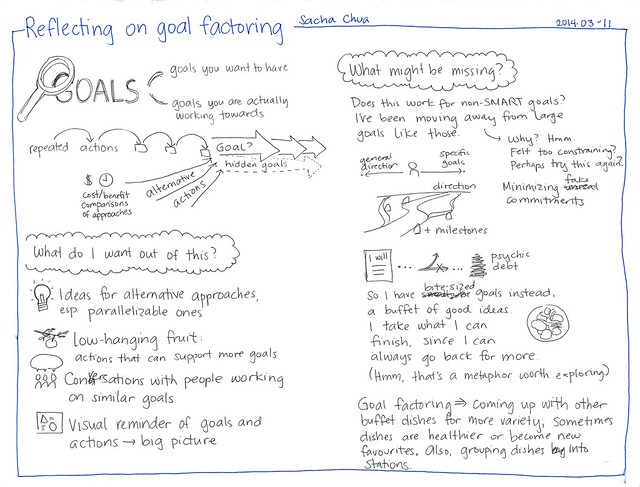 Reflecting on goal factoring
Sacha Chua
2014-03-11
GOALS
goals you want to have
goals you are actually
working towards
repeated actions
Goal?
hidden goals
$
Cost/benefit
Comparisons
of approaches
alternative
actions
What do I want out of this?
Ideas for alternative approaches,
esp parallelizable ones
Low-hanging fruit:
actions that can support more goals
Conversations with people working
on similar goals
Visual reminder of goals and
actions → big picture
What might be missing?
Does this work for non-SMART goals?
I've been moving away from large
goals like those.
Why? Hmm.
Felt too constraining?
Perhaps try this again?
general
direction
specific
goals
Minimizing fake
commitments
direction
+ milestones
I will
... ...
psychic
debt
bite-sized
So I have goals instead,
a buffet of good ideas.
I take what I can
finish, since I can
always go back for more.
(Hmm, that's a metaphor worth exploring)
Goal factoring ⇒ coming up with other
buffet dishes for more variety; sometimes
dishes are healthier or become new
favourites. Also, grouping dishes into
stations.